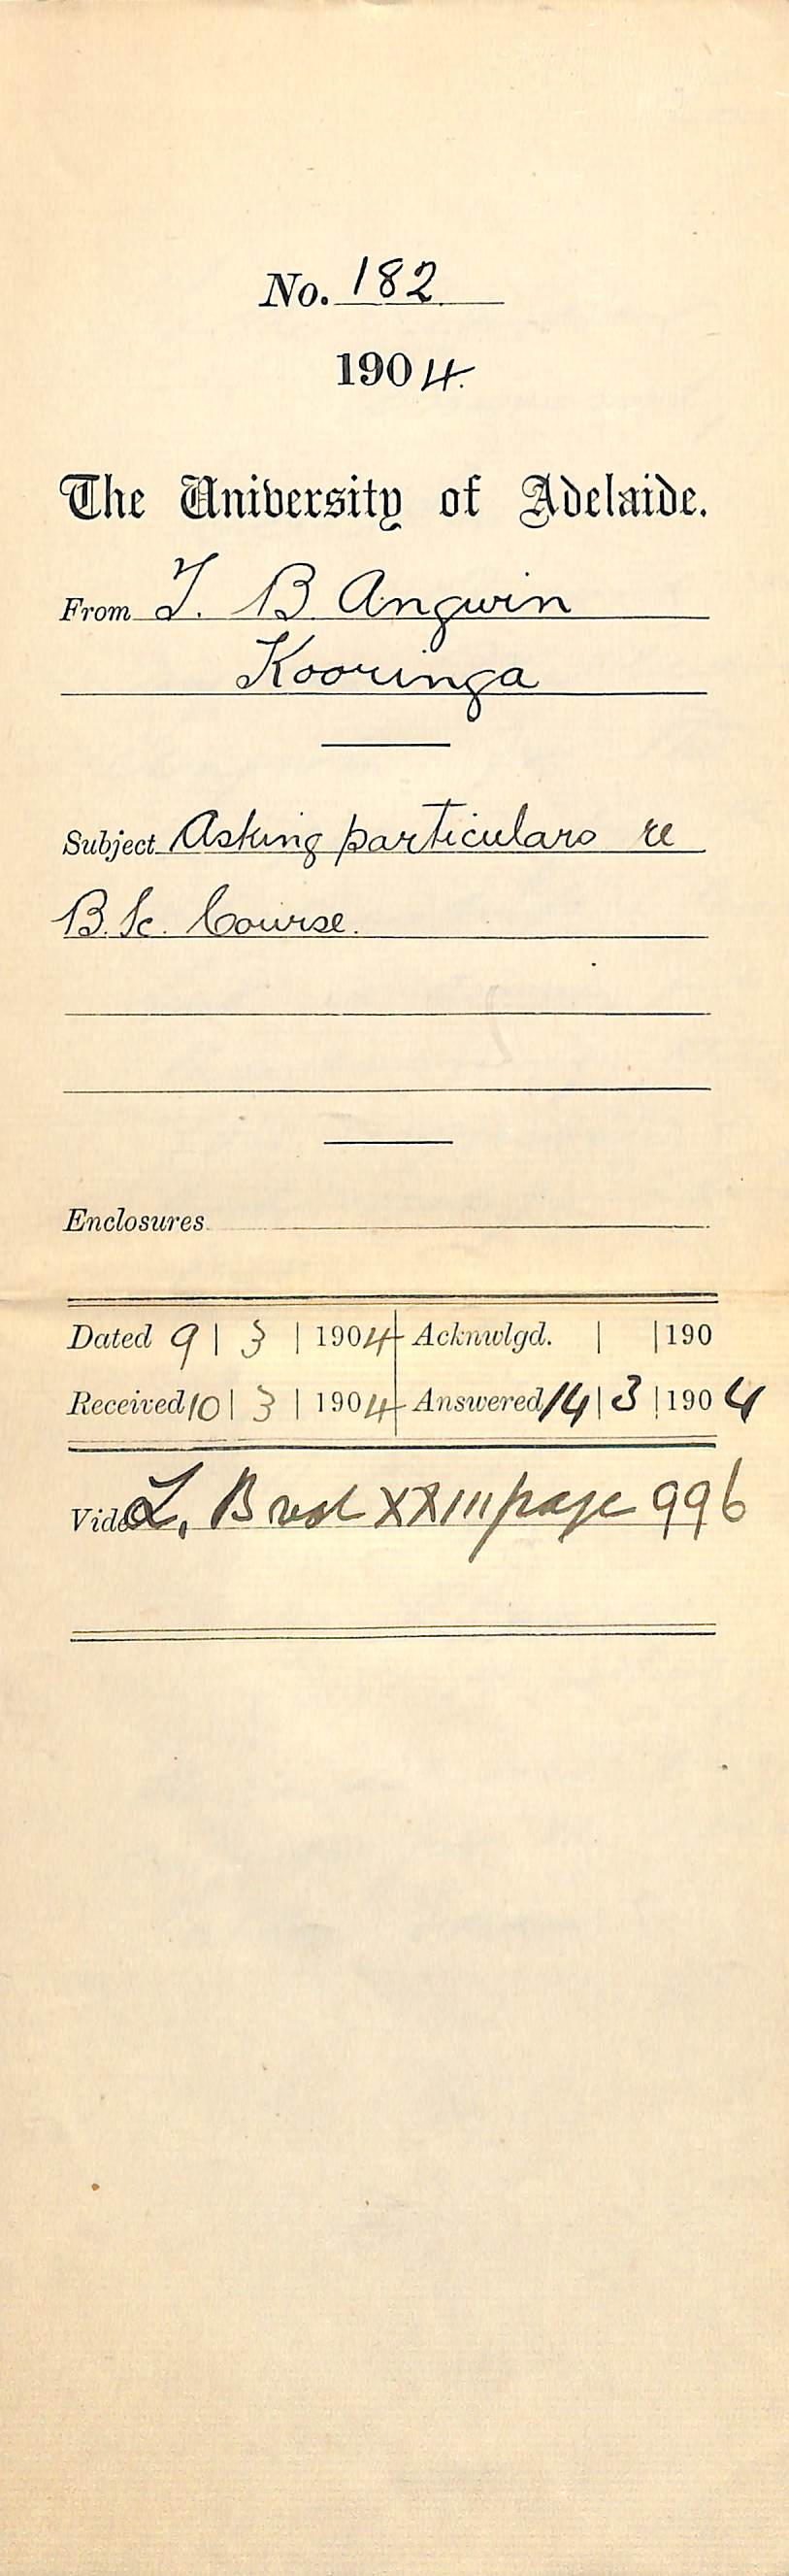 No. 182
1904.
The University of Adelaide.
From T. B. Angwin
Kooringa
Subject Asking particulars re
B. Sc. Course.
Enclosures
Dated 9 | 3 | 1904 Acknwlgd. | | 190
Received 10 | 3 | 1904 Answered 14 | 3 | 1904
Vide L, B vol XXIII page 996